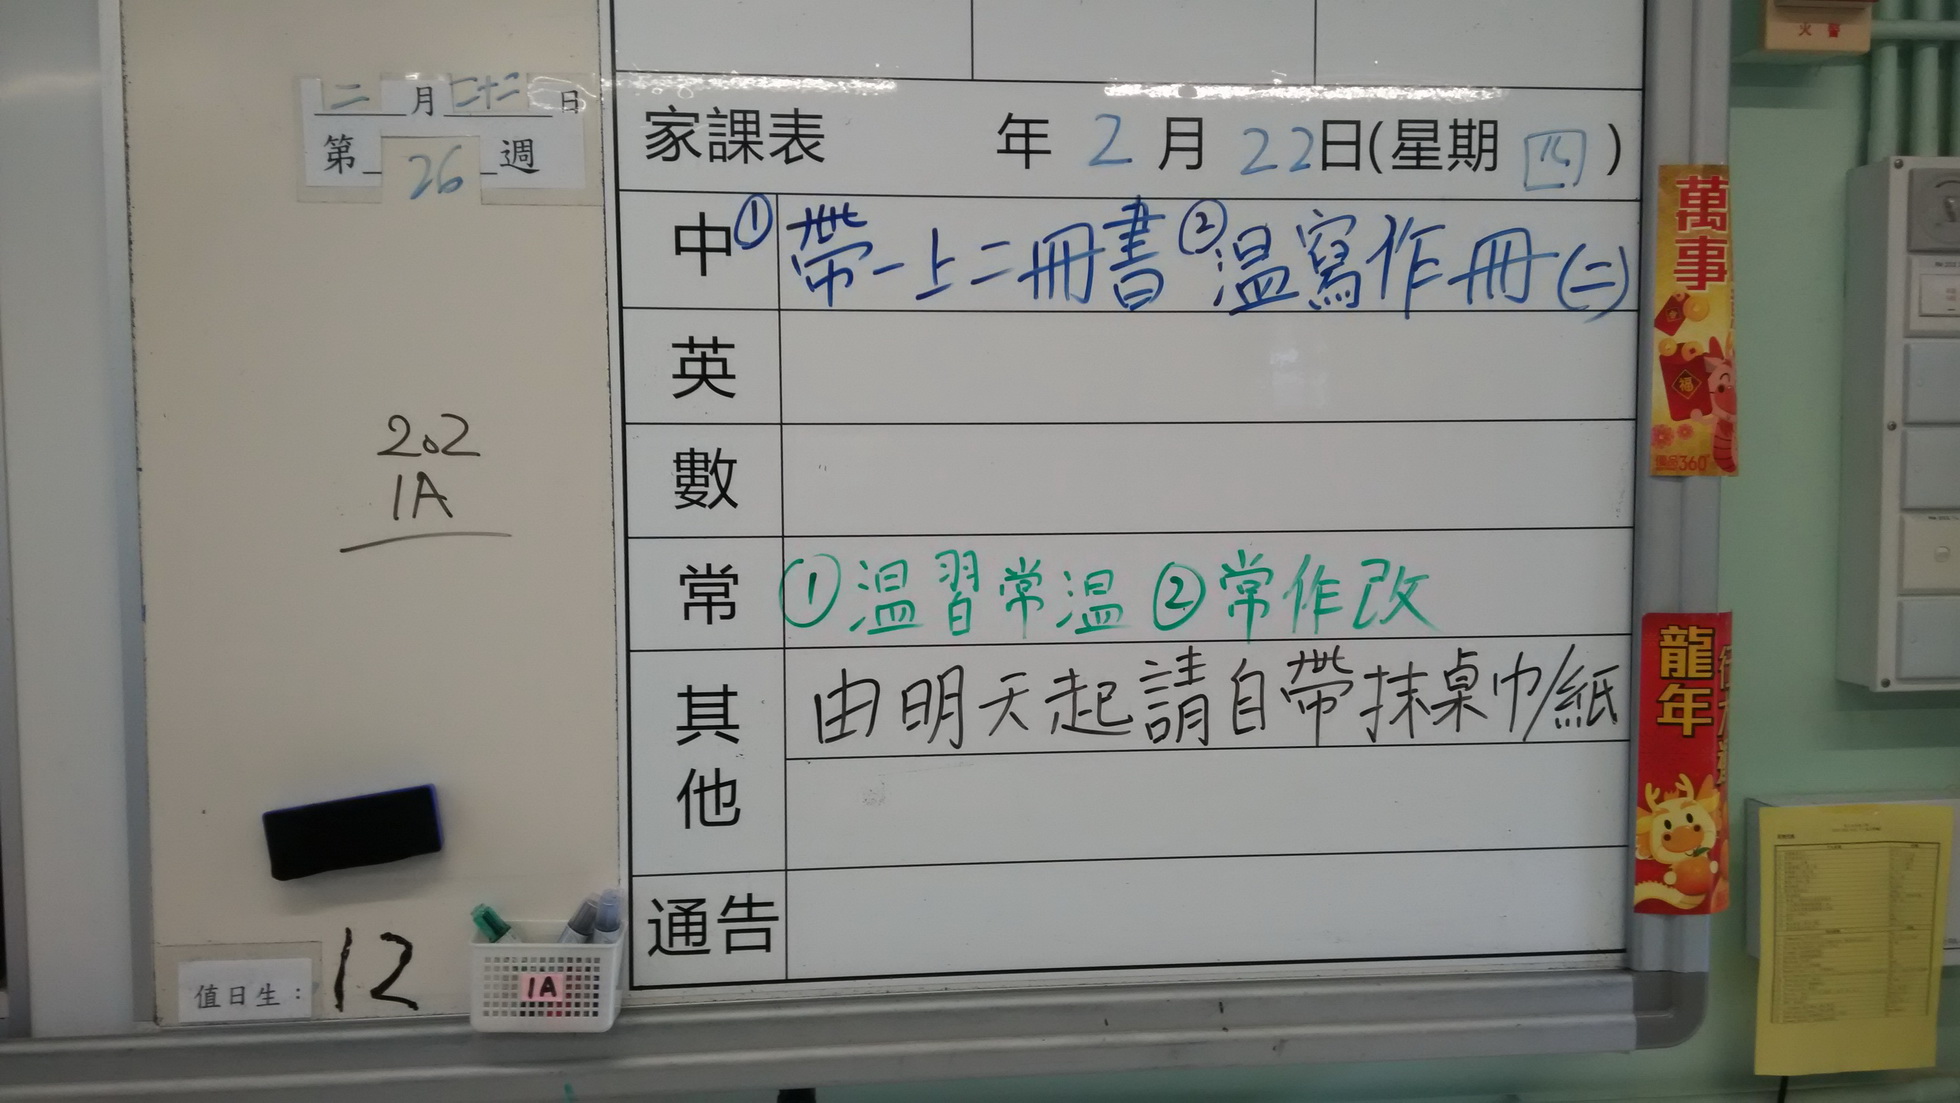 二月二十二日
第26週
202
1A
值日生：12
1A
家課表 年2月22日(星期四)
中 ①帶一上二冊書②温寫作冊(二)
英
數
常 ①温習常温 ②常作改
其他 由明天起請自帶抹桌巾/紙
通告
火警
萬事
福
360
龍年